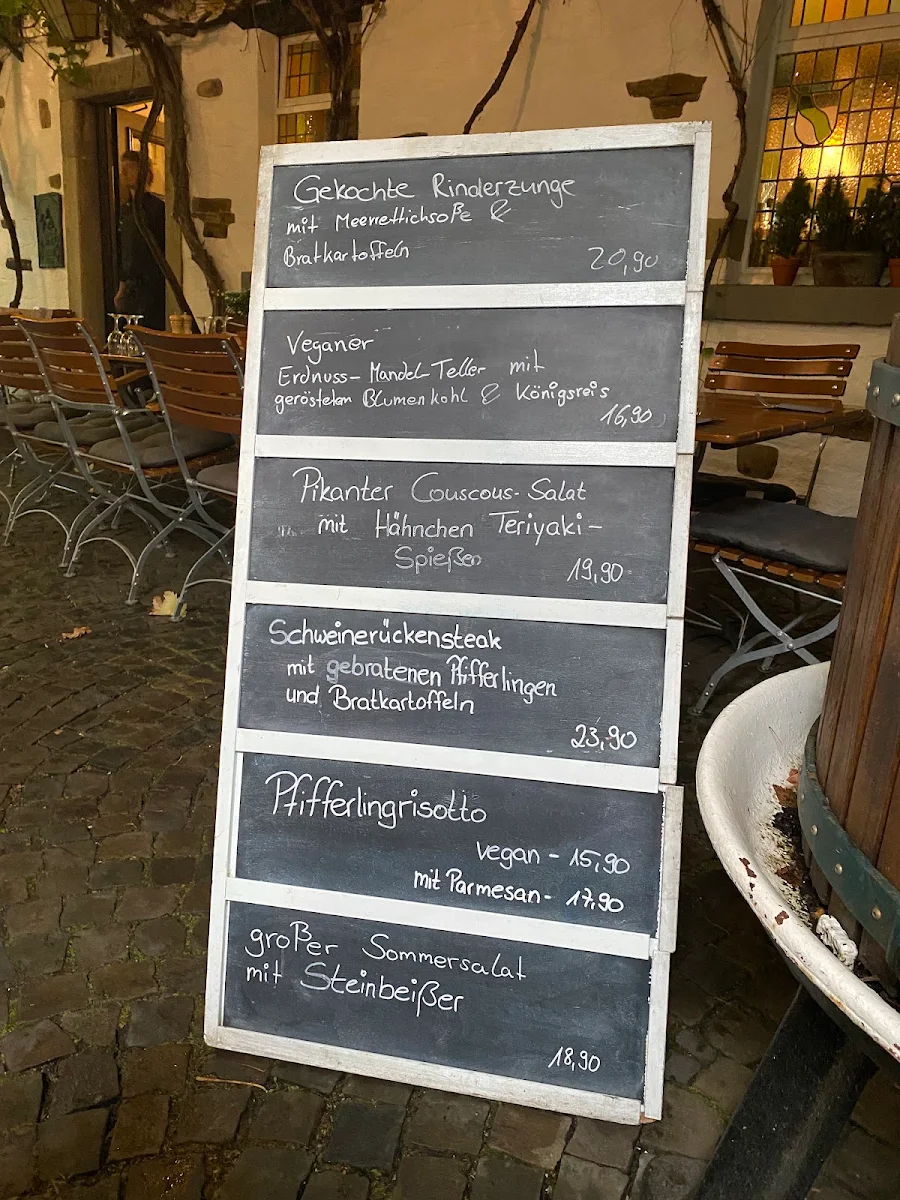 Gekochte Rinderzunge
mit Meerrettichsoße &
Bratkartoffeln
20,90
Veganer
Erdnuss-Mandel-Teller mit
geröstetem Blumenkohl & Königsreis
16,90
Pikanter Couscous-Salat
mit Hähnchen Teriyaki-
Spießen
19,90
Schweinerückensteak
mit gebratenen Pfifferlingen
und Bratkartoffeln
23,90
Pfifferlingrisotto
vegan - 15,90
mit Parmesan - 17,90
großer Sommersalat
mit Steinbeißer
18,90